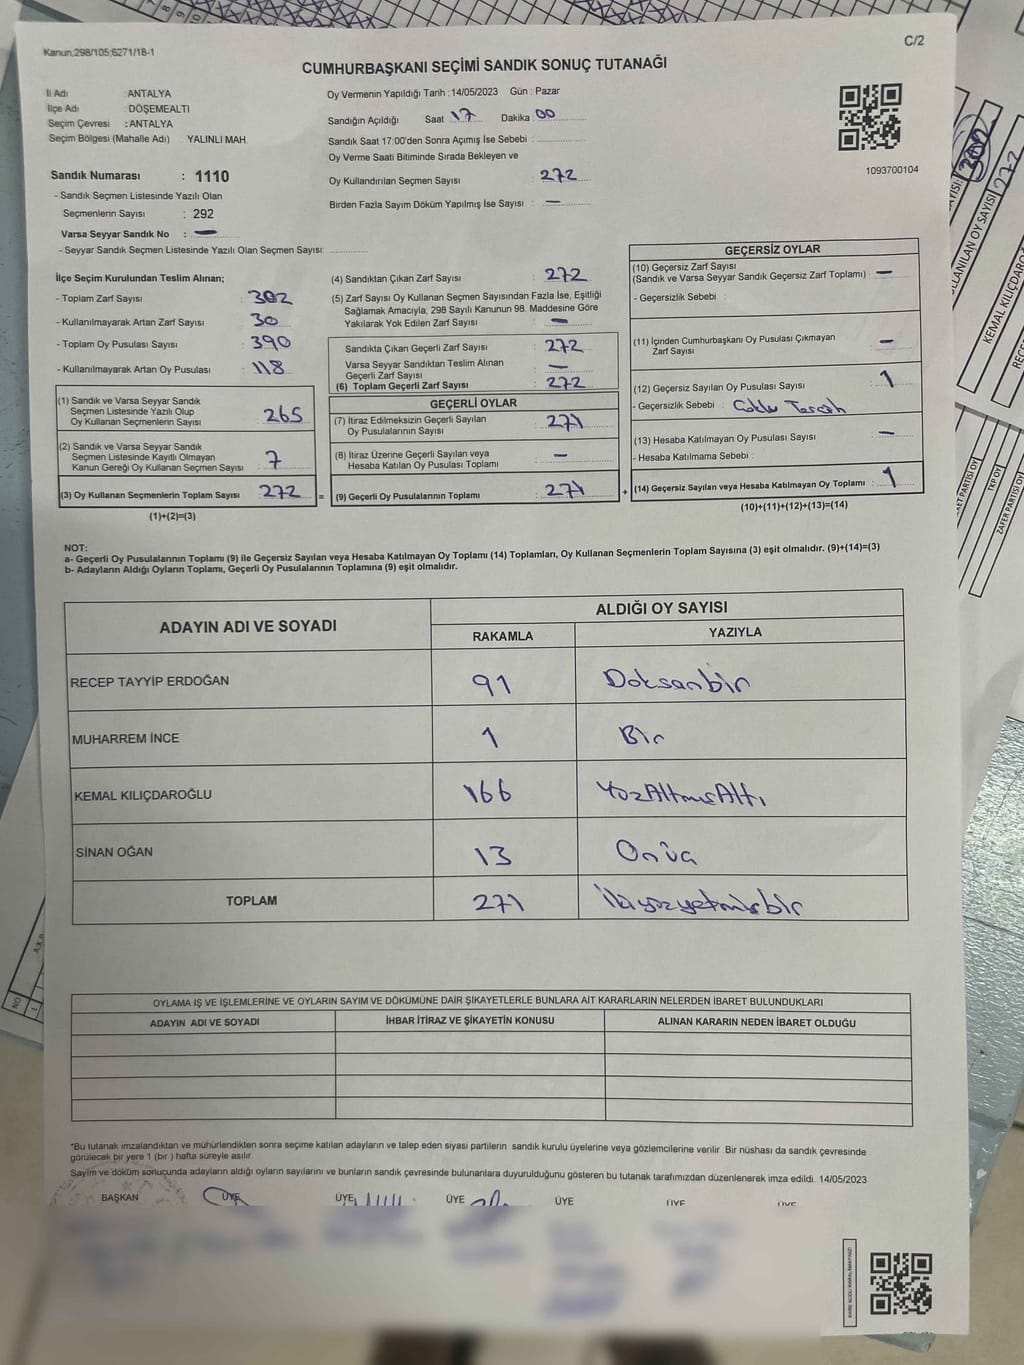 Kanun;298/105;6271/18-1
C/2
CUMHURBAŞKANI SEÇİMİ SANDIK SONUÇ TUTANAĞI
İl Adı : ANTALYA
İlçe Adı : DÖŞEMEALTI
Seçim Çevresi : ANTALYA
Seçim Bölgesi (Mahalle Adı) : YALINLI MAH.
Oy Vermenin Yapıldığı Tarih : 14/05/2023 Gün : Pazar
Sandığın Açıldığı Saat 17 Dakika 00
Sandık Saat 17:00'den Sonra Açımış İse Sebebi :
Oy Verme Saati Bitiminde Sırada Bekleyen ve
Oy Kullandırılan Seçmen Sayısı : 272
Birden Fazla Sayım Döküm Yapılmış İse Sayısı : —
1093700104
Sandık Numarası : 1110
- Sandık Seçmen Listesinde Yazılı Olan
Seçmenlerin Sayısı : 292
Varsa Seyyar Sandık No : —
- Seyyar Sandık Seçmen Listesinde Yazılı Olan Seçmen Sayısı:
İlçe Seçim Kurulundan Teslim Alınan;
- Toplam Zarf Sayısı : 302
- Kullanılmayarak Artan Zarf Sayısı : 30
- Toplam Oy Pusulası Sayısı : 390
- Kullanılmayarak Artan Oy Pusulası : 118
(1) Sandık ve Varsa Seyyar Sandık
Seçmen Listesinde Yazılı Olup
Oy Kullanan Seçmenlerin Sayısı : 265
(2) Sandık ve Varsa Seyyar Sandık
Seçmen Listesinde Kayıtlı Olmayan
Kanun Gereği Oy Kullanan Seçmen Sayısı : 7
(3) Oy Kullanan Seçmenlerin Toplam Sayısı : 272 =
(1)+(2)=(3)
(4) Sandıktan Çıkan Zarf Sayısı : 272
(5) Zarf Sayısı Oy Kullanan Seçmen Sayısından Fazla İse, Eşitliği
Sağlamak Amacıyla; 298 Sayılı Kanunun 98. Maddesine Göre
Yakılarak Yok Edilen Zarf Sayısı : —
Sandıkta Çıkan Geçerli Zarf Sayısı : 272
Varsa Seyyar Sandıktan Teslim Alınan
Geçerli Zarf Sayısı : —
(6) Toplam Geçerli Zarf Sayısı : 272
GEÇERLİ OYLAR
(7) İtiraz Edilmeksizin Geçerli Sayılan
Oy Pusulalarının Sayısı : 271
(8) İtiraz Üzerine Geçerli Sayılan veya
Hesaba Katılan Oy Pusulası Toplamı : —
(9) Geçerli Oy Pusulalarının Toplamı : 271 +
GEÇERSİZ OYLAR
(10) Geçersiz Zarf Sayısı
(Sandık ve Varsa Seyyar Sandık Geçersiz Zarf Toplamı) : —
- Geçersizlik Sebebi :
(11) İçinden Cumhurbaşkanı Oy Pusulası Çıkmayan
Zarf Sayısı : —
(12) Geçersiz Sayılan Oy Pusulası Sayısı : 1
- Geçersizlik Sebebi : Çoklu Tercih
(13) Hesaba Katılmayan Oy Pusulası Sayısı : —
- Hesaba Katılmama Sebebi :
(14) Geçersiz Sayılan veya Hesaba Katılmayan Oy Toplamı : 1
(10)+(11)+(12)+(13)=(14)
NOT:
a- Geçerli Oy Pusulalarının Toplamı (9) ile Geçersiz Sayılan veya Hesaba Katılmayan Oy Toplamı (14) Toplamları, Oy Kullanan Seçmenlerin Toplam Sayısına (3) eşit olmalıdır. (9)+(14)=(3)
b- Adayların Aldığı Oyların Toplamı, Geçerli Oy Pusulalarının Toplamına (9) eşit olmalıdır.
ADAYIN ADI VE SOYADI ALDIĞI OY SAYISI
RAKAMLA YAZIYLA
RECEP TAYYİP ERDOĞAN 91 Doksanbir
MUHARREM İNCE 1 Bir
KEMAL KILIÇDAROĞLU 166 YüzAltmışAltı
SİNAN OĞAN 13 Onüç
TOPLAM 271 İkiyüzyetmişbir
OYLAMA İŞ VE İŞLEMLERİNE VE OYLARIN SAYIM VE DÖKÜMÜNE DAİR ŞİKAYETLERLE BUNLARA AİT KARARLARIN NELERDEN İBARET BULUNDUKLARI
ADAYIN ADI VE SOYADI İHBAR İTİRAZ VE ŞİKAYETİN KONUSU ALINAN KARARIN NEDEN İBARET OLDUĞU
*Bu tutanak imzalandıktan ve mühürlendikten sonra seçime katılan adayların ve talep eden siyasi partilerin sandık kurulu üyelerine veya gözlemcilerine verilir. Bir nüshası da sandık çevresinde
görülecek bir yere 1 (bir ) hafta süreyle asılır.
Sayım ve döküm sonucunda adayların aldığı oyların sayılarını ve bunların sandık çevresinde bulunanlara duyurulduğunu gösteren bu tutanak tarafımızdan düzenlenerek imza edildi. 14/05/2023
BAŞKAN ÜYE ÜYE ÜYE ÜYE ÜYE ÜYE
KEMAL KILIÇDARO
ZAFER PARTİSİ OY
TKP OY